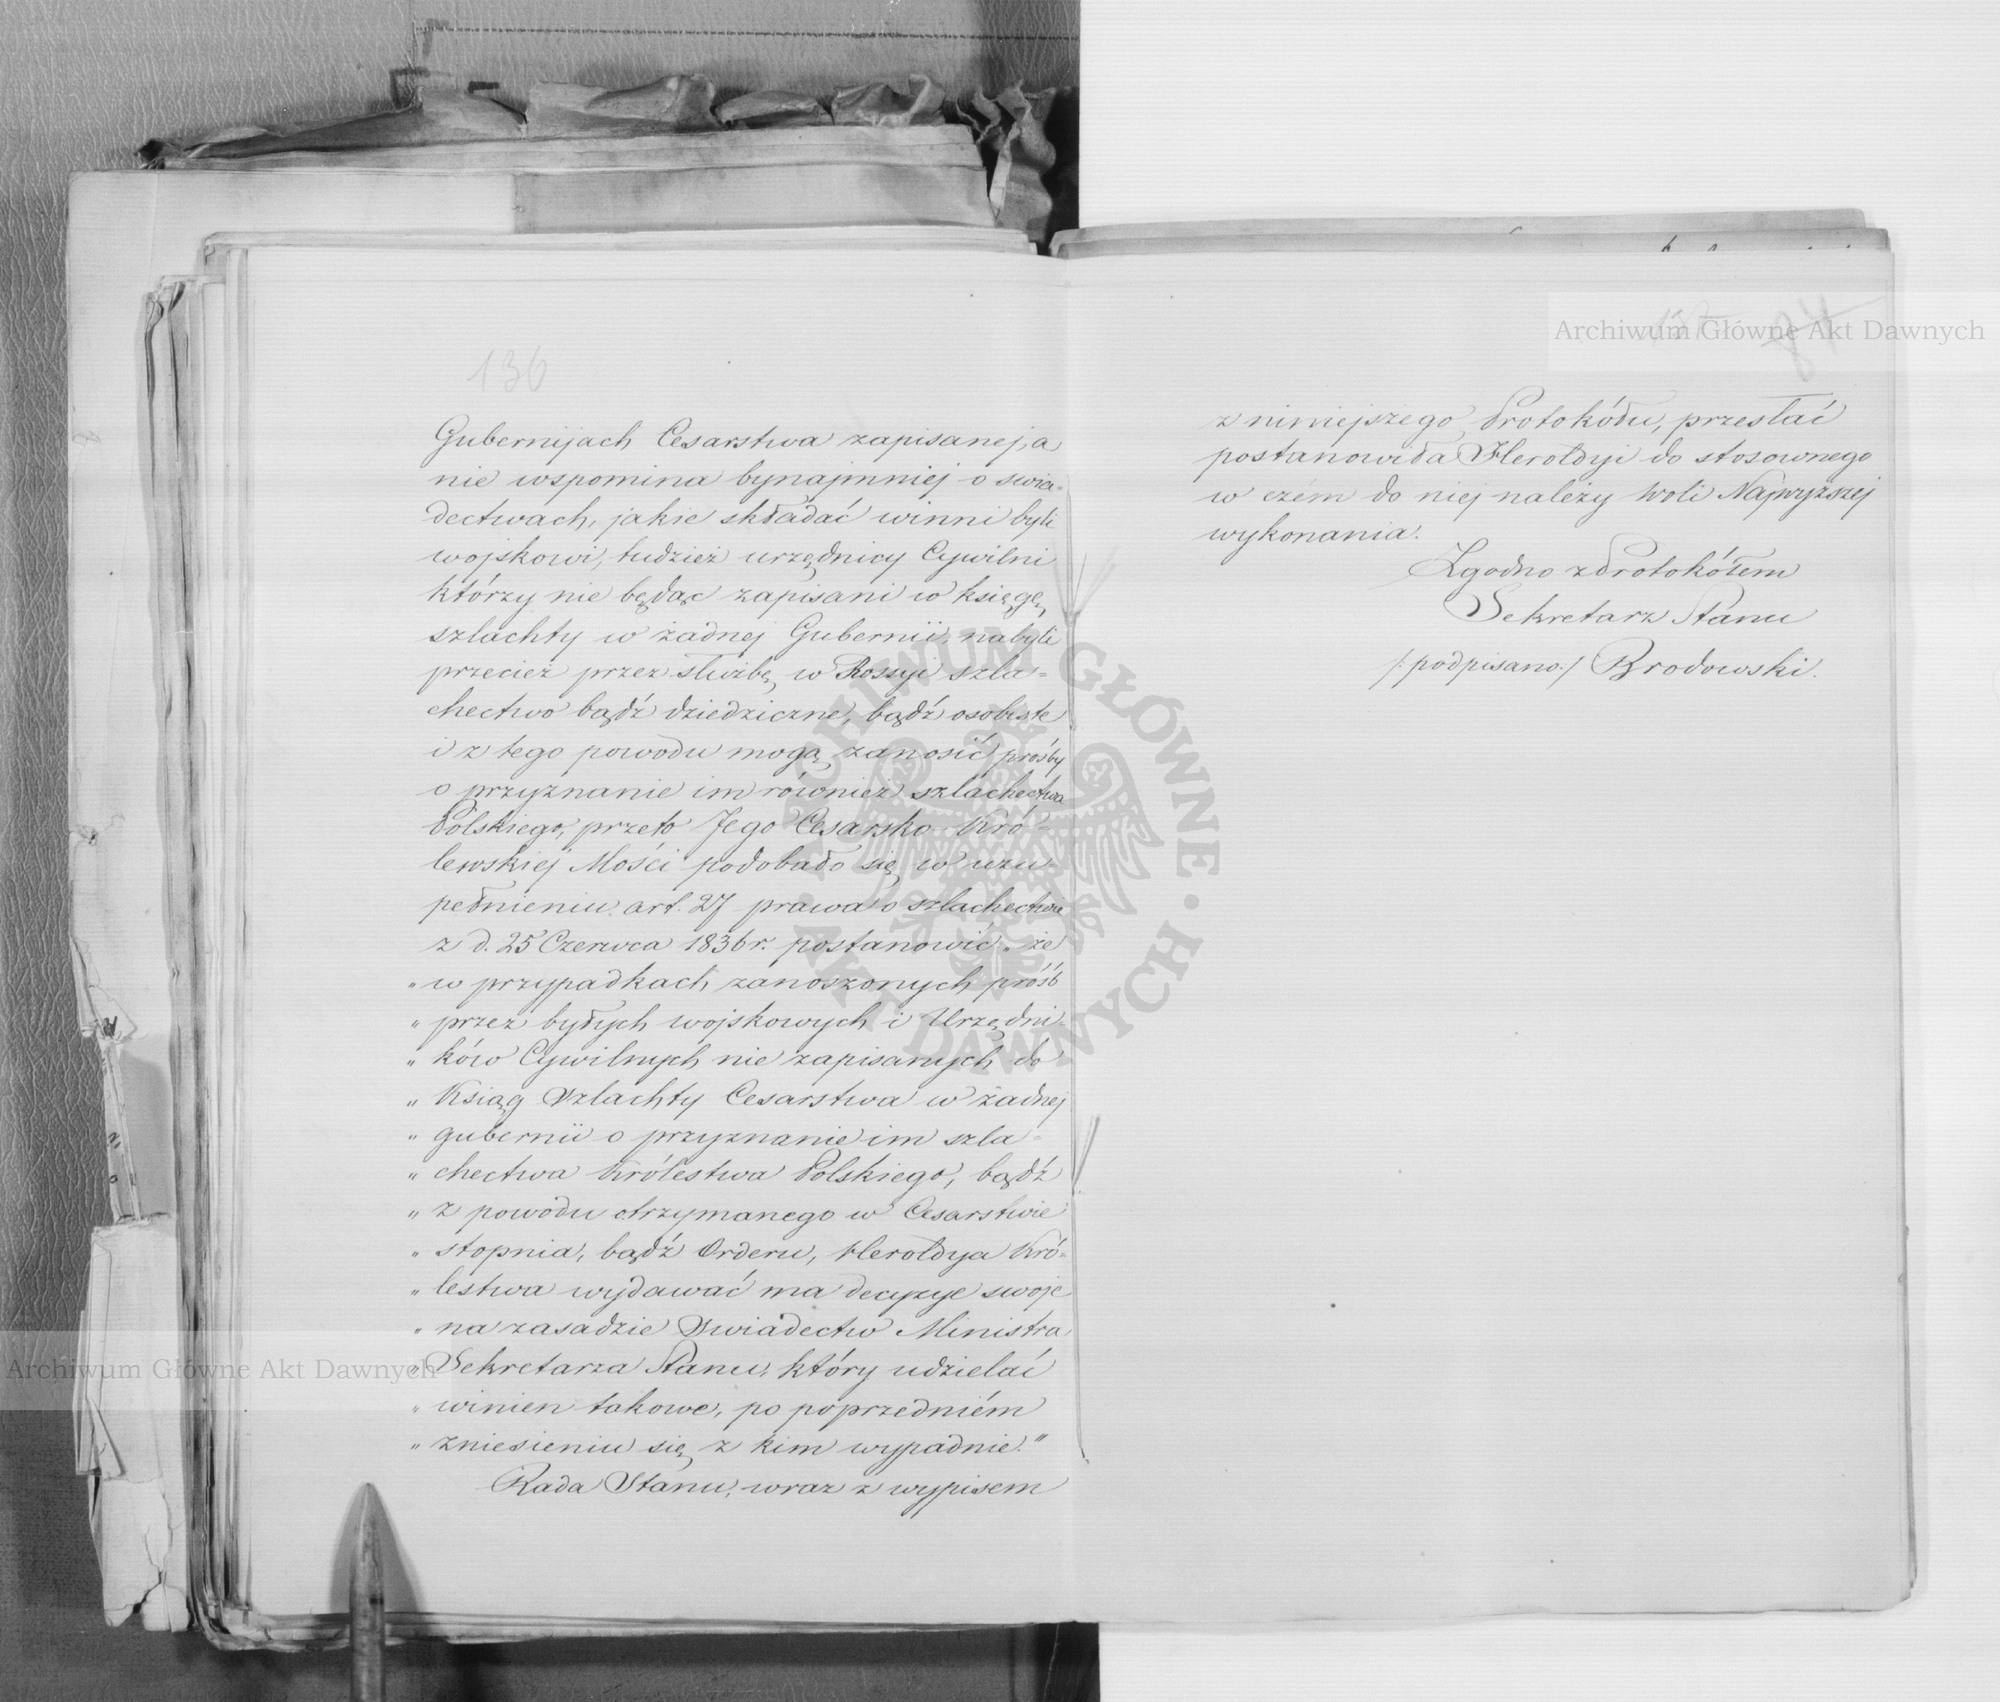 136
Gubernijach Cesarstwa zapisanej, a
nie wspomina bynajmniej o świa-
dectwach, jakie składać winni byli
wojskowi, tudzież urzędnicy Cywilni
którzy nie będąc zapisani w księgę
szlachty w żadnej Gubernii, nabyli
przecież przez służbę w Rossyi szla=
chectwo bądź dziedziczne, bądź osobiste
i z tego powodu mogą zanosić prośby
o przyznanie im również szlachectwa
Polskiego, przeto Jego Cesarsko Kró-
lewskiej Mości podobało się w uzu-
pełnieniu art. 27 prawa o szlachectwie
z d. 25 Czerwca 1836 r. postanowić „że
„w przypadkach zanoszonych próśb
„przez byłych wojskowych i Urzędni-
„ków Cywilnych nie zapisanych do
„Ksiąg Szlachty Cesarstwa w żadnej
„gubernii o przyznanie im szla=
„chectwa Królestwa Polskiego, bądź
„z powodu otrzymanego w Cesarstwie
„stopnia, bądź Orderu, Heroldya Kró=
„lestwa wydawać ma decyzye swoje
„na zasadzie Świadectw Ministra
„Sekretarza Stanu, który udzielać
„winien takowe, po poprzedniém
„zniesieniu się z kim wypadnie."
Rada Stanu, wraz z wypisem
137 84
z niniejszego Protokółu, przesłać
postanowiła Heroldyi do stosownego
w czém do niej należy Woli Najwyższej
wykonania.
Zgodno z Protokółem
Sekretarz Stanu
/:podpisano:/ Brodowski.
Archiwum Główne Akt Dawnych
Archiwum Główne Akt Dawnych
ARCHIWUM GŁÓWNE AKT DAWNYCH